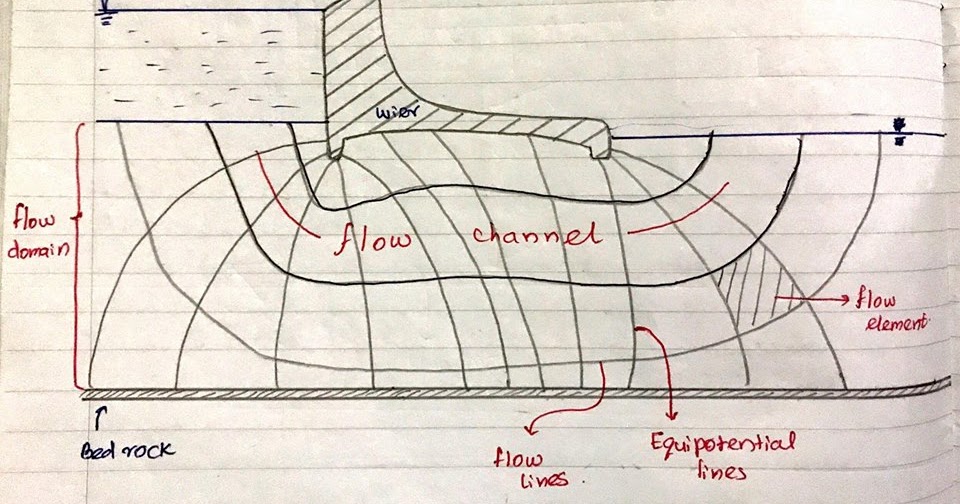 wier
flow
domain
flow channel
flow
element
Bed rock
flow
lines
Equipotential
lines